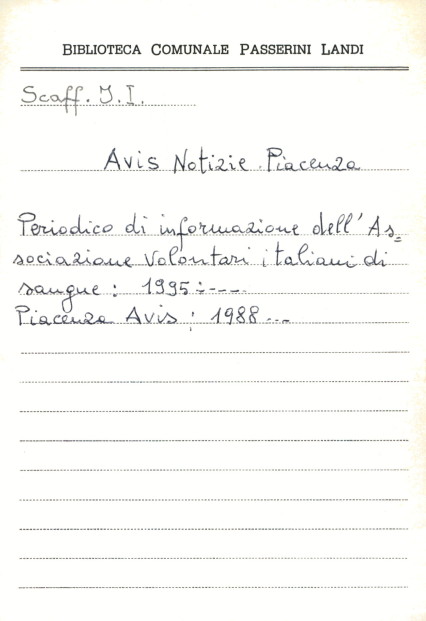 BIBLIOTECA COMUNALE PASSERINI LANDI
Scaff. I.I.
Avis Notizie Piacenza
Periodico di informazione dell'As=
sociazione Volontari italiani di
sangue : 1995 : ----
Piacenza Avis : 1988 ---